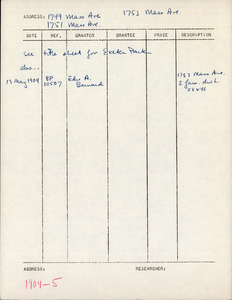 ADDRESS: 1749 Mass Ave 1753 Mass Ave.
1751 Mass Ave
DATE REF. GRANTOR GRANTEE PRICE DESCRIPTION
See title sheet for Exeter Park
also...
13 May 1904 BP 10507 Edw. A. Barnard 1753 Mass. Ave.
2 fam. dwl.
ADDRESS: RESEARCHER:
1904-5